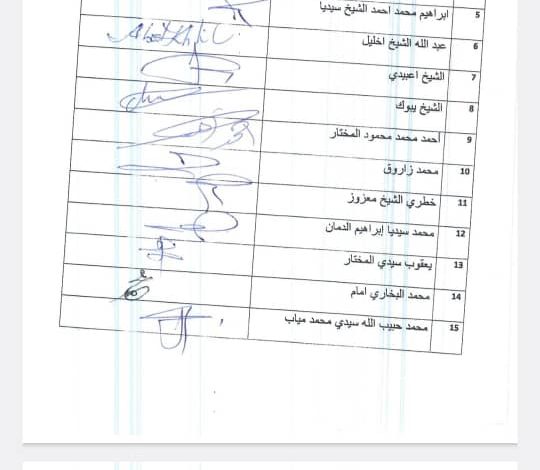 5 ابراهيم محمد احمد الشيخ سيديا
6 عبد الله الشيخ اخليل
7 الشيخ اعبيدي
8 الشيخ ببوك
9 احمد محمد محمود المختار
10 محمد زاروق
11 خطري الشيخ معزوز
12 محمد سيديا إبراهيم الدمان
13 يعقوب سيدي المختار
14 محمد البخاري امام
15 محمد حبيب الله سيدي محمد مياب